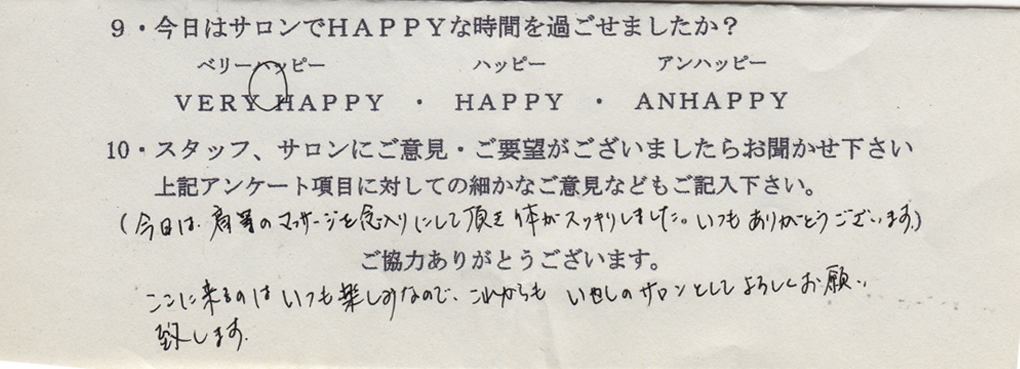 9・今日はサロンでHAPPYな時間を過ごせましたか？
ベリーハッピー ハッピー アンハッピー
VERY HAPPY ・ HAPPY ・ ANHAPPY
10・スタッフ、サロンにご意見・ご要望がございましたらお聞かせ下さい
上記アンケート項目に対しての細かなご意見などもご記入下さい。
(今日は、肩胃のマッサージを念入りにして頂き体がスッキリしました。いつもありがとうございます。)
ご協力ありがとうございます。
ここに来るのはいつも楽しみなので、これからも いやしのサロンとしてよろしくお願い
致します。